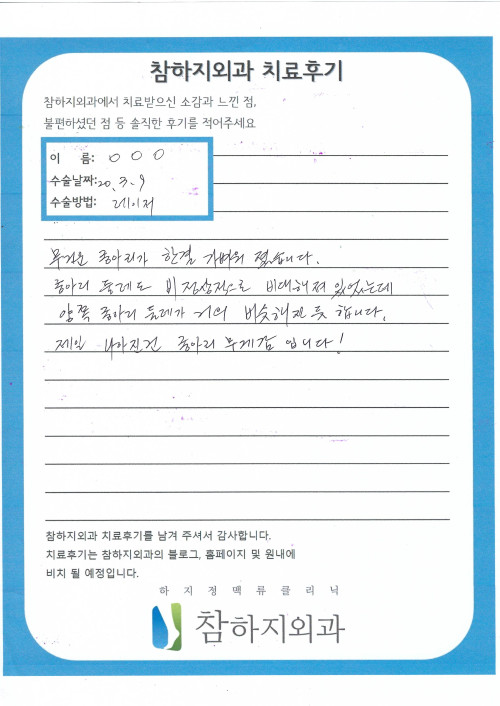 참하지외과 치료후기
참하지외과에서 치료받으신 소감과 느낀 점,
불편하셨던 점 등 솔직한 후기를 적어주세요
이 름: ○ ○ ○
수술날짜: 20. 3. 9
수술방법: 레이저
무거운 종아리가 한결 가벼워 졌습니다.
종아리 둘레도 비정상적으로 비대해져 있었는데
양쪽 종아리 둘레가 거의 비슷해진 듯 합니다.
제일 나아진건 종아리 무게감 입니다!
참하지외과 치료후기를 남겨 주셔서 감사합니다.
치료후기는 참하지외과의 블로그, 홈페이지 및 원내에
비치 될 예정입니다.
하지정맥류클리닉
참하지외과